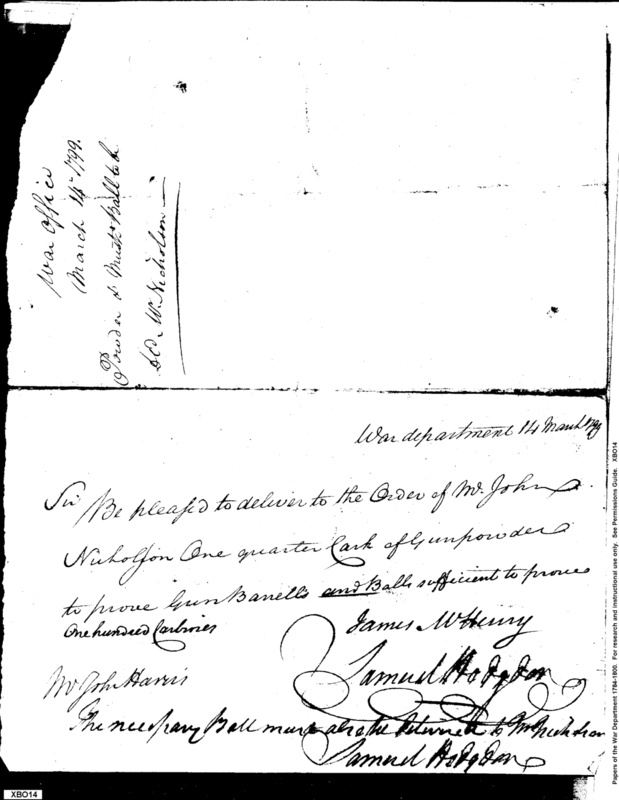 War Office
March 14th 1799.
Powder & Musk Ball to be
dld. W. Nicholson
War department 14 March 1799
Sir Be pleased to deliver to the Order of Mr. John
Nicholson One quarter Cask of Gunpowder
to prove Gun Barrells and Balls sufficient to prove
One hundred Carbines
James McHenry
Samuel Hodgdon
Mr John Harris
The necessary Ball must also be delivered to Mr Nicholson
Samuel Hodgdon
XBO14
Papers of the War Department 1784-1800. For research and instructional use only. See Permissions Guide. XBO14